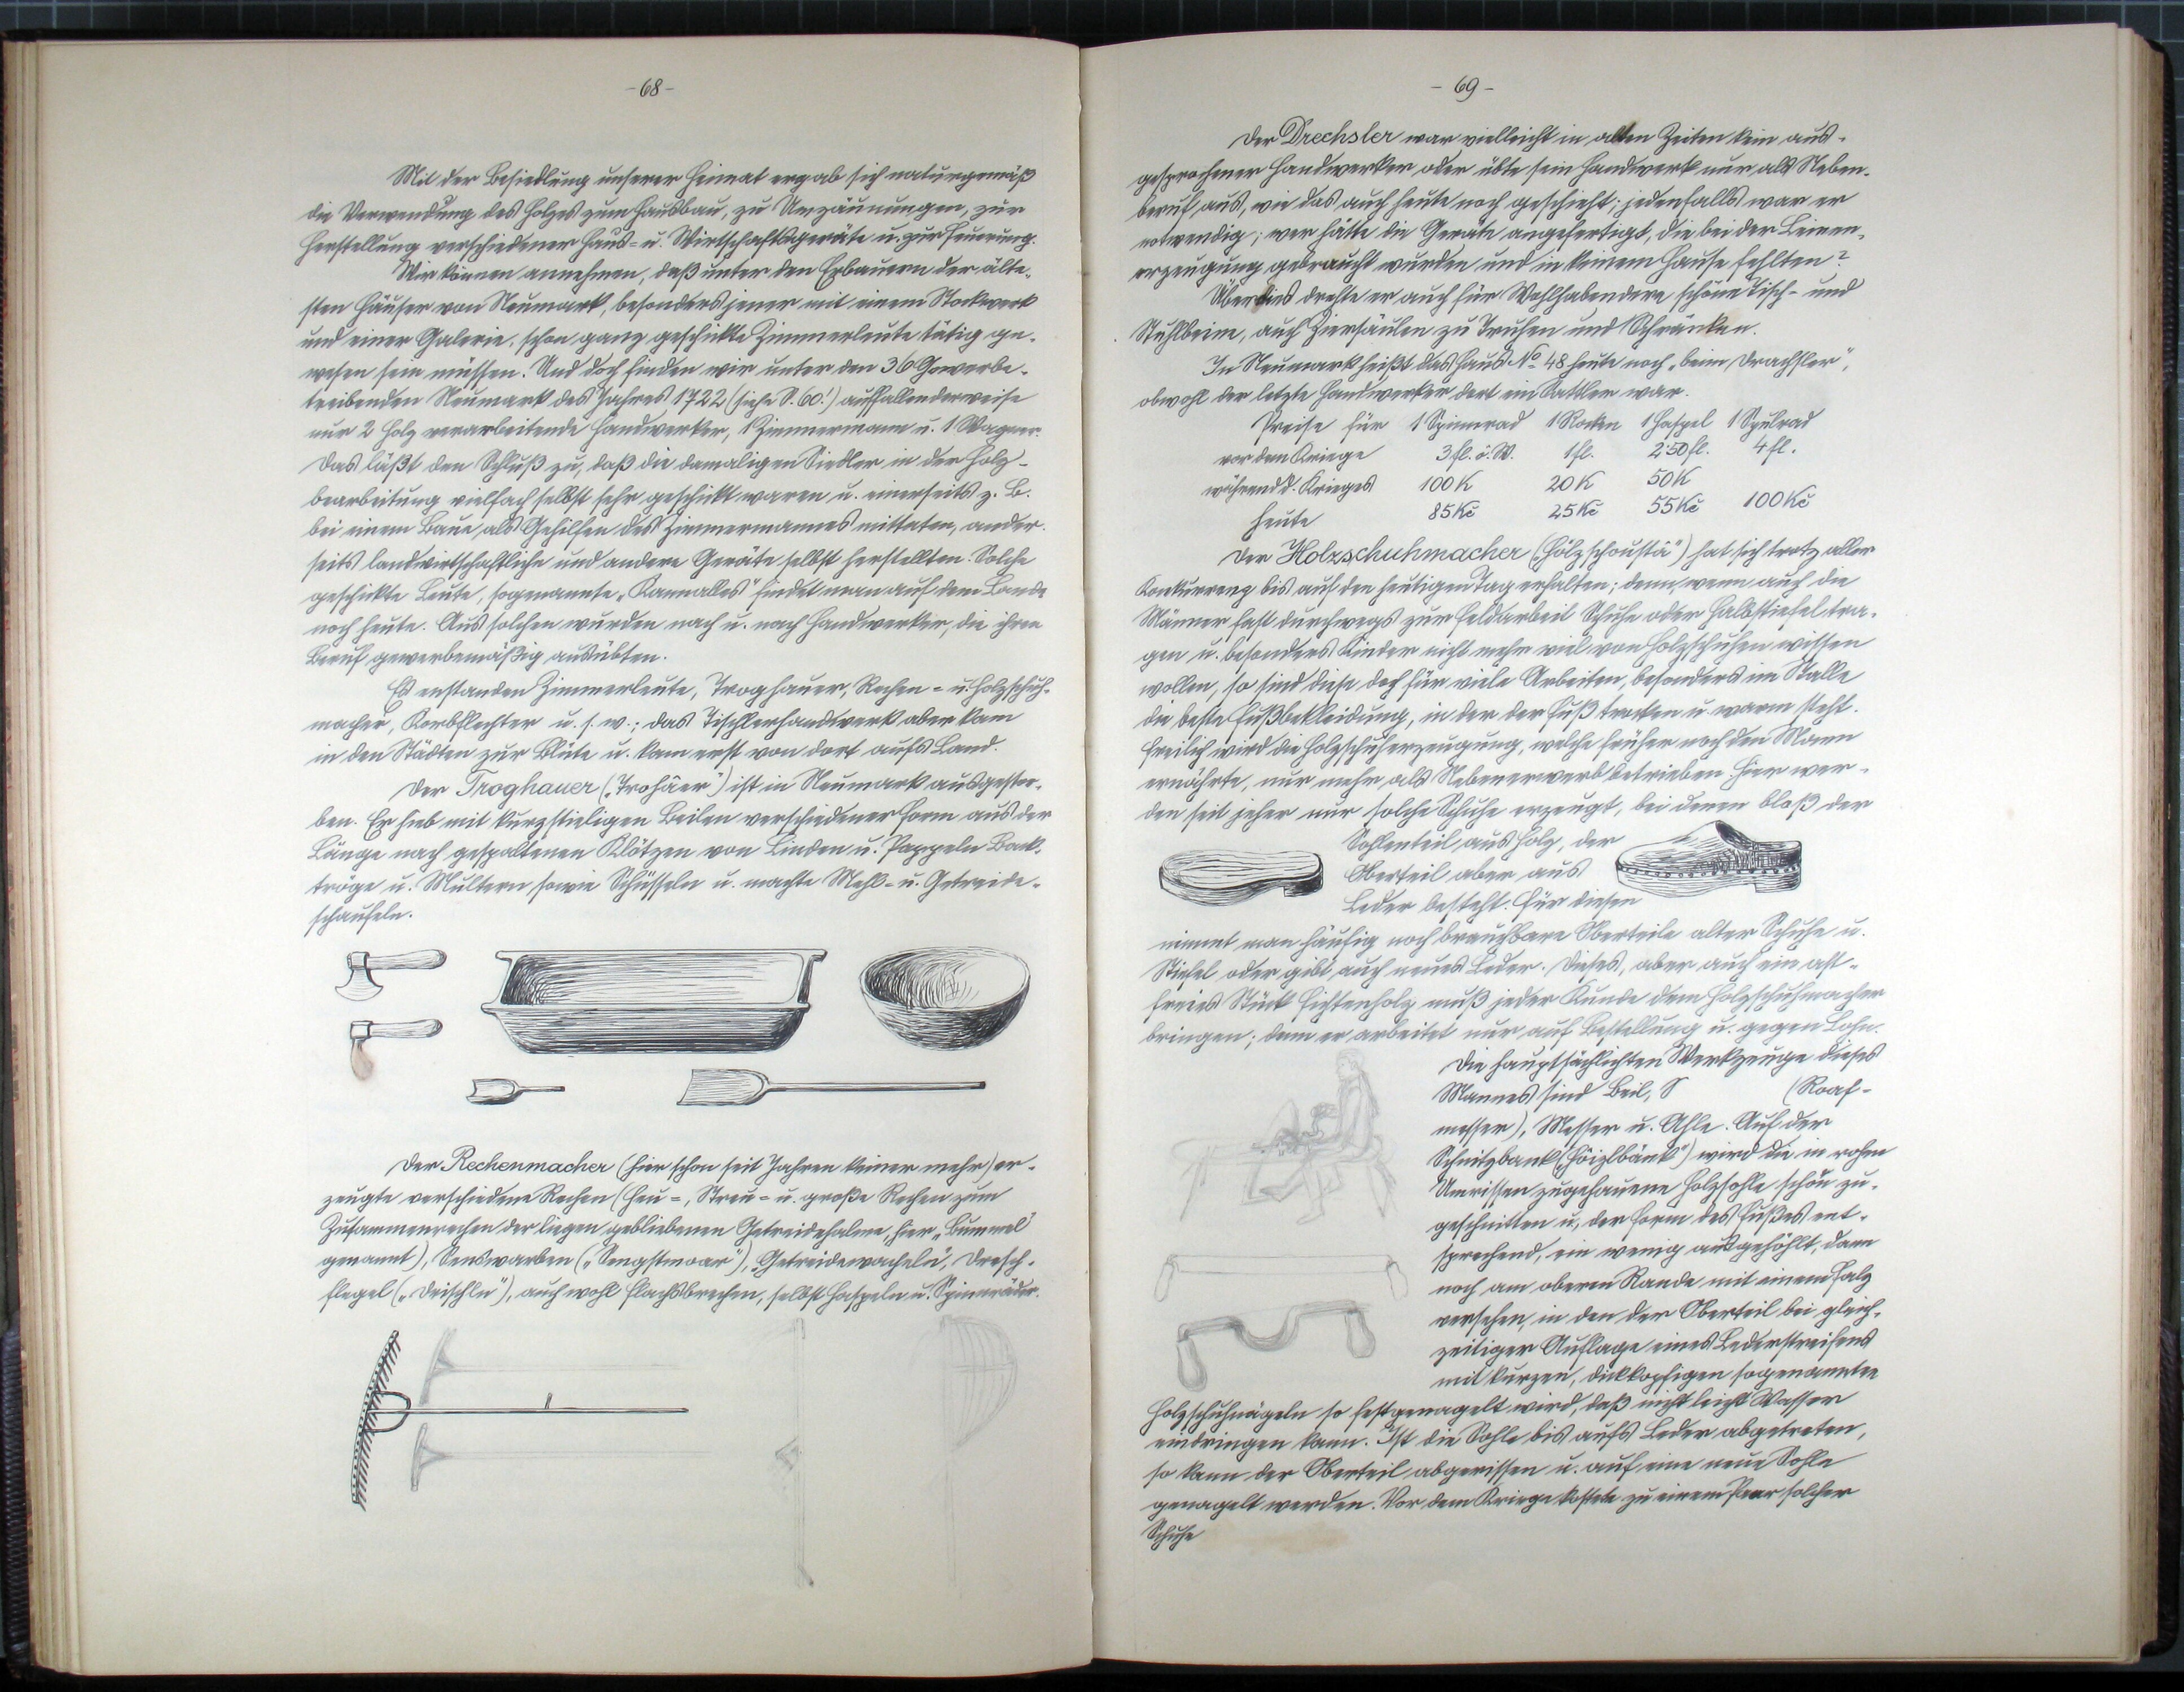 -68-
Mit der Besiedlung unserer Heimat ergab sich naturgemäß
die Verwendung des Holzes zum Hausbau, zu Umzäunungen, zur
Herstellung verschiedener Haus- u. Wirtschaftsgeräte u. zur Feuerung.
Wir können annehmen, daß unter den Erbauern der älte-
sten Häuser von Neumark, besonders jener mit einem Stockwerk
und einer Galerie, schon ganz geschickte Zimmerleute tätig ge-
wesen sein müssen. Und doch finden wir unter den 36 Gewerbe-
treibenden Neumark des Jahres 1722 (siehe S. 60!) auffallenderweise
nur 2 Holz verarbeitende Handwerker, 1 Zimmermann u. 1 Wagner.
Das läßt den Schluß zu, daß die damaligen Siedler in der Holz-
bearbeitung vielfach selbst sehr geschickt waren u. einerseits z. B.
bei einem Baue, als Gehilfen des Zimmermannes mittaten, ander-
seits landwirtschaftliche und andere Geräte selbst herstellten. Solche
geschickte Leute, sogenannte „Kannalles" findet man auf dem Lande
noch heute. Aus solchen wurden nach u. nach Handwerker, die ihren
Beruf gewerbemäßig ausübten.
Es enstanden Zimmerleute, Troghauer, Rechen- u. Holzschuh-
macher, Korbflechter u. s. w.; das Tischlerhandwerk aber kam
in den Städten zur Blüte u. kam erst von dort aufs Land.
Der Troghauer („Trohäer") ist in Neumark ausgestor-
ben. Er hieb mit kurzstieligen Beilen verschiedener Form aus der
Länge nach gespaltenen Klötzen von Linden u. Pappeln Back-
tröge u. Multern sowie Schüsseln u. machte Mehl- u. Getreide-
schaufeln.
Der Rechenmacher (hier schon seit Jahren keiner mehr) er-
zeugte verschiedene Rechen (Heu-, Streu- u. große Rechen zum
Zusammenrechen der liegen gebliebenen Getreidehalme, hier „Bummel"
genannt), Senswarben („Sengstmoar"), „Getreidewacheln", Dresch-
flegel („Drischln"), auch wohl Flachsbrechen, selbst Haspeln u. Spinnräder.
-69-
Der Drechsler war vielleicht in alten Zeiten kein aus-
gesprochener Handwerker oder übte sein Handwerk nur als Neben-
beruf aus, wie das auch heute noch geschieht; jedenfalls war er
notwendig; wer hätte die Geräte angefertigt, die bei der Leinen-
erzeugung gebraucht wurden und in keinem Hause fehlten?
Überdies drehte er auch für Wohlhabendere schöne Tisch- und
Stuhlbeine, auch Ziersäulen zu Truhen und Schränken.
In Neumark heißt das Haus No 48 heute noch „beim Drachsler",
obwohl der letzte Handwerker dort ein Sattler war.
Preise für 1 Spinnrad 1 Rocken 1 Haspel 1 Spulrad
vor dem Kriege 3 fl. ö. W. 1 fl. 2·50 fl. 4 fl.
während d. Krieges 100 K 20 K 50 K
heute 85 Kč 25 Kč 55 Kč 100 Kč
Der Holzschuhmacher („Hölzschoustä") hat sich trotz aller
Konkurrenz bis auf den heutigen Tag erhalten; denn, wenn auch die
Männer fast durchwegs zur Feldarbeit Schuhe oder Halbstiefel tra-
gen u. besonders Kinder nicht mehr viel von Holzschuhen wissen
wollen, so sind diese doch für viele Arbeiten, besonders im Stalle
die beste Fußbekleidung, in der der Fuß trocken u. warm steht.
Freilich wird die Holzschuherzeugung, welche früher noch den Mann
ernährte, nur mehr als Nebenerwerb betrieben. Hier wer-
den seit jeher nur solche Schuhe erzeugt, bei denen bloß der
Sohlenteil aus Holz, der
Oberteil aber aus
Leder besteht. Für diesen
nimmt man häufig noch brauchbare Oberteile alter Schuhe u.
Stiefel oder gibt auch neues Leder. Dieses, aber auch ein ast-
freies Stück Fichtenholz muß jeder Kunde dem Holzschuhmacher
bringen; denn er arbeitet nur auf Bestellung u. gegen Lohn.
Die hauptsächlichsten Werkzeuge dieses
Mannes sind Beil, S (Roaf-
messer), Messer u. Ahle. Auf der
Schnitzbank („Höizlbänk") wird die in rohen
Umrissen zugehauene Holzsohle schön zu-
geschnitten u., der Form des Fußes ent-
sprechend, ein wenig ausgehöhlt, dann
noch am oberen Rande mit einem Falz
versehen, in den der Oberteil bei gleich-
zeitiger Auflage eines Lederstreifens
mit kurzen, dickkopfigen sogenannten
Holzschuhnägeln so festgenagelt wird, daß nicht leicht Wasser
eindringen kann. Ist die Sohle bis aufs Leder abgetreten,
so kann der Oberteil abgerissen u. auf eine neue Sohle
genagelt werden. Vor dem Kriege kostete zu einem Paar solcher
Schuhe